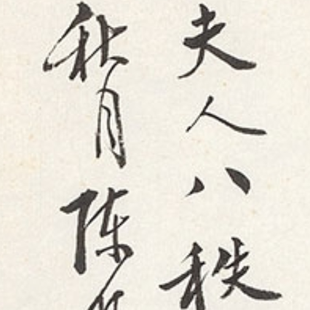 夫人八秩
秋月陈